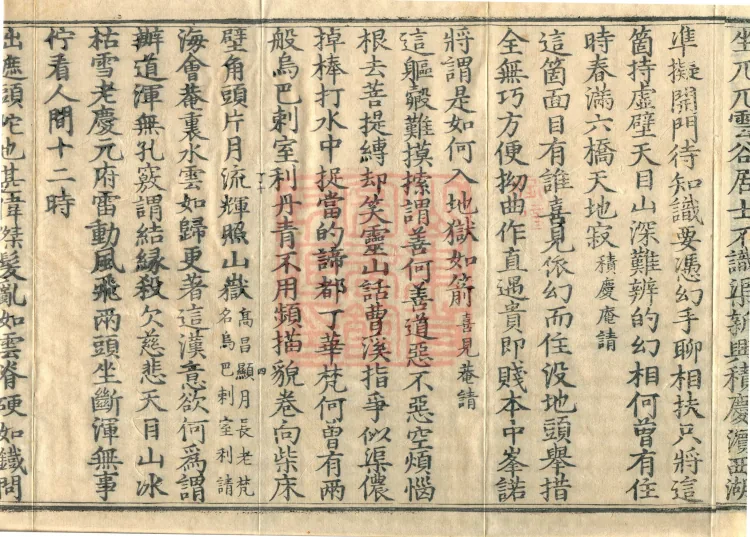 坐兀兀雲谷居士不識渠新與積慶瀆西湖
準擬開門待知識要憑幻手聊相扶只將這
箇持虛壁天目山深難辨的幻相何曾有住
時春滿六橋天地寂積慶庵請
這箇面目有誰喜見依幻而住沒地頭舉措
全無巧方便拗曲作直遇貴即賤本中峯諾
將謂是如何入地獄如箭喜見菴請
這軀殼難摸𢱢謂善何善道惡不惡空煩惱
根去菩提縛却笑靈山話曹溪指爭似渠儂
掉棒打水中捉當的諦都丁華梵何曾有兩
般烏巴剌室利丹青不用頻描貌卷向柴床
壁角頭片月流輝照山嶽高昌顯月長老梵
名烏巴剌室利請
海會菴裏水雲如歸更著這漢意欲何爲謂
辦道渾無孔竅謂結緣殺欠慈悲天目山冰
枯雪老慶元府雷動風飛兩頭坐斷渾無事
佇看人間十二時
也甚偉傑髮亂如雲脊硬如鐵問